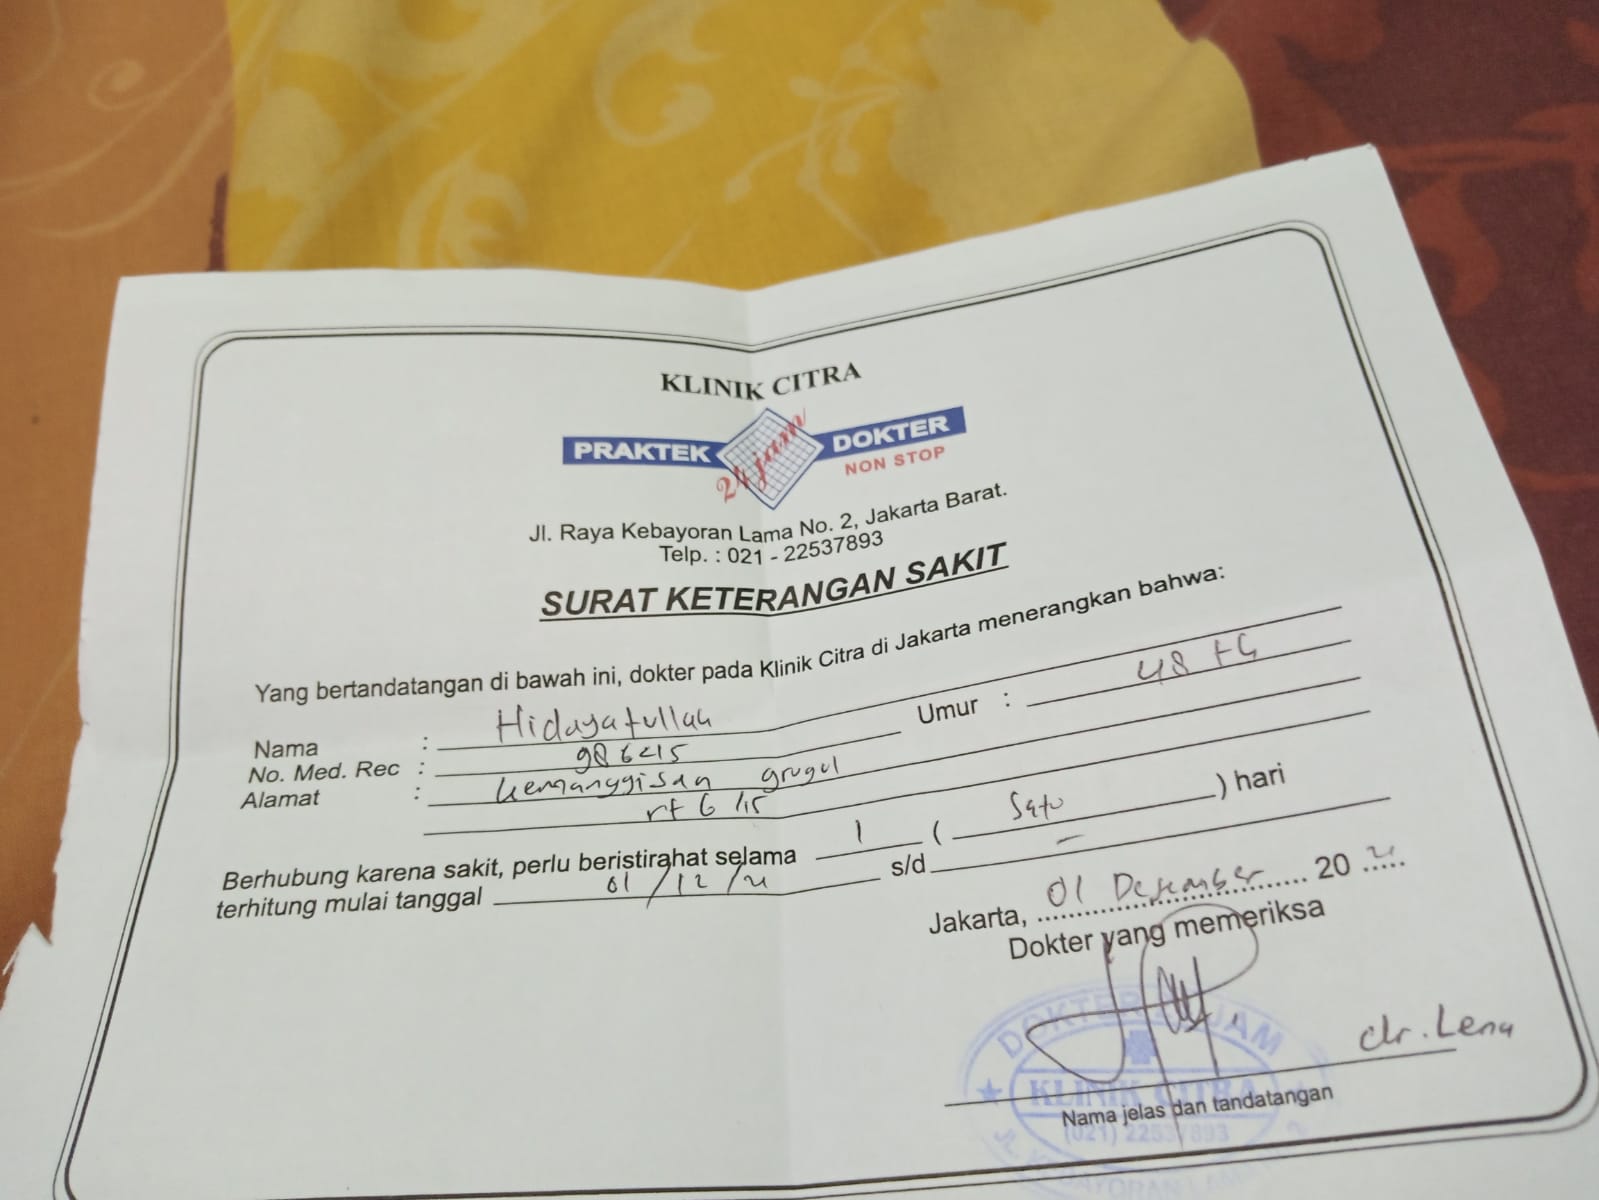 KLINIK CITRA
PRAKTEK 24 jam DOKTER
NON STOP
Jl. Raya Kebayoran Lama No. 2, Jakarta Barat.
Telp. : 021 - 22537893
SURAT KETERANGAN SAKIT
Yang bertandatangan di bawah ini, dokter pada Klinik Citra di Jakarta menerangkan bahwa:
Nama : Hidayatullah Umur : 48
No. Med. Rec :
Alamat : kemanggisan grogol
rt 6 /15
Berhubung karena sakit, perlu beristirahat selama 1 ( Satu ) hari
terhitung mulai tanggal 01/12/21 s/d -
Jakarta, 01 Desember 20 21
Dokter yang memeriksa
DOKTER JAM
KLINIK CITRA
(021) 22537893
dr. Lena
Nama jelas dan tandatangan